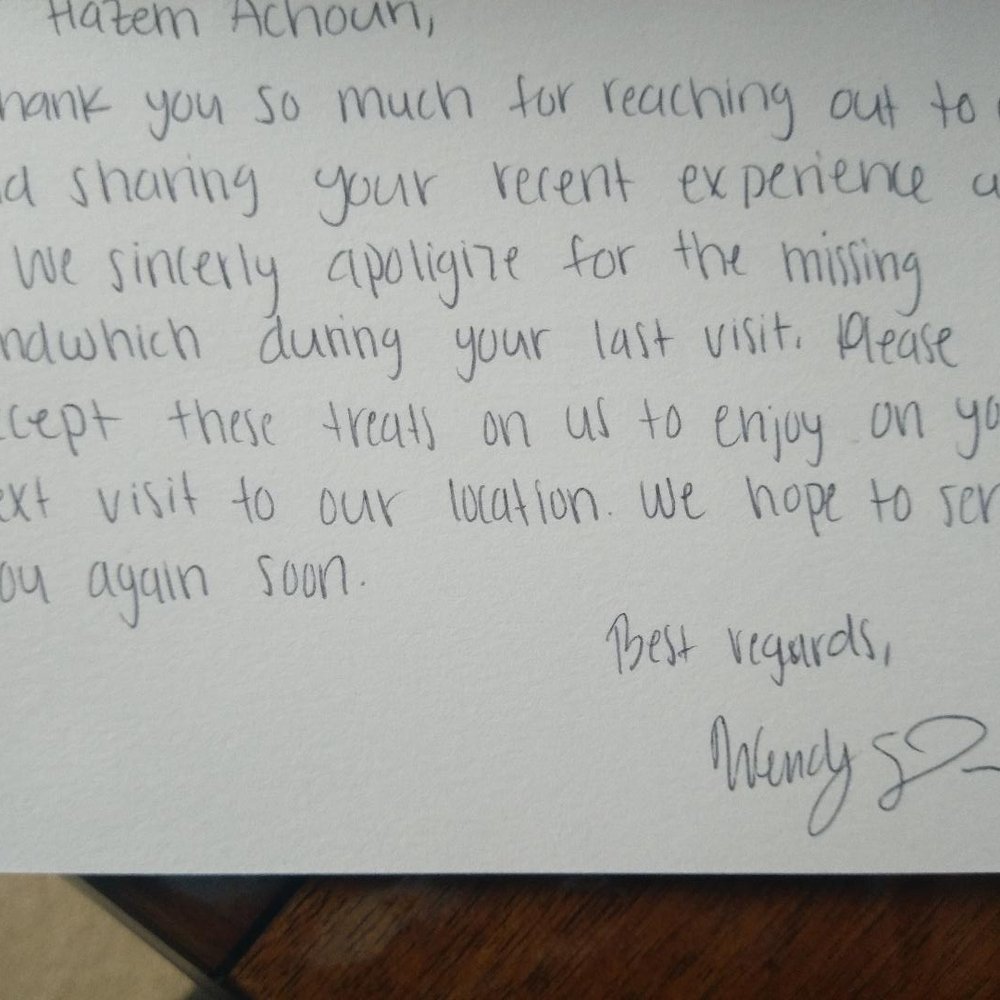 Hazem Achour,
hank you so much for reaching out to
d sharing your recent experience a
We sincerly apoligize for the missing
ndwhich during your last visit. Please
cept these treats on us to enjoy on yo
ext visit to our location. We hope to ser
ou again soon.
Best regards,
Wendy